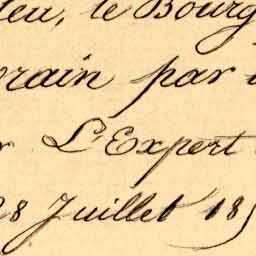 lieu, le Bourg
rrain par
L'Expert
28 Juillet 185